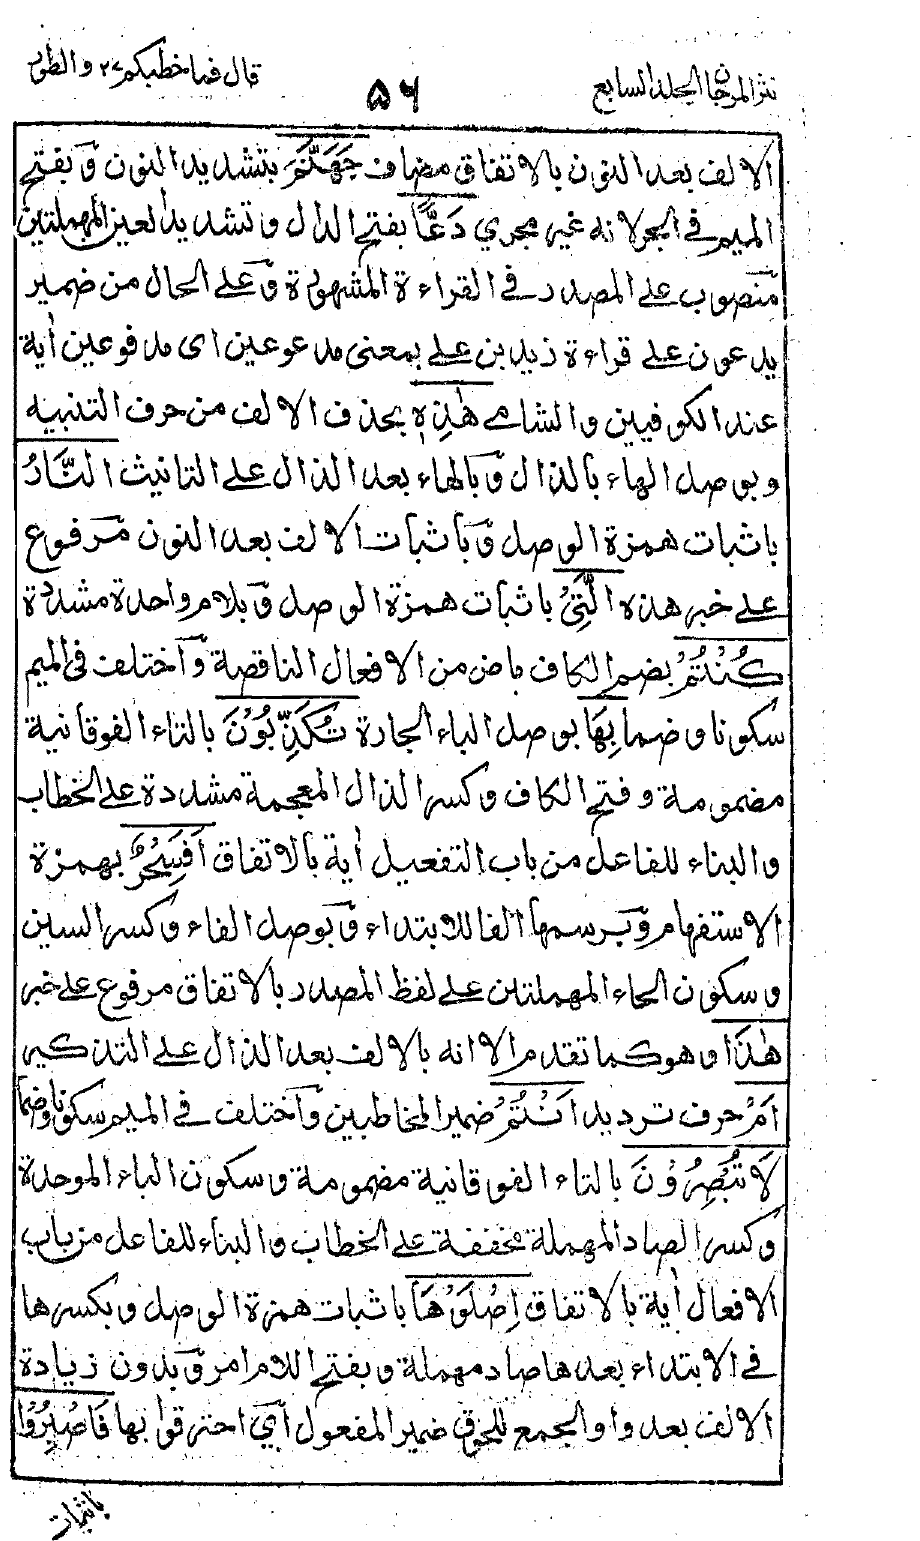 نثر المرجان المجلد السابع
۵۶
قال فما خطبكم ٢٧ والطور
الالف بعد النون بالاتفاق مضاف جَهَنَّمَ بتشديد النون وَبفتح
الميم في الجر لانه غير مجري دَعًّا بفتح الدال وتشديد العين المهملتين
منصوب على المصدر في القراءة المشهورة وَعلى الحال من ضمير
يدعون على قراءة زيد بن على بمعنى مدعوعين اى مدفوعين أية
عند الكوفيين والشامي هٰذِهِ بحذف الالف من حرف التنبيه
وبوصل الهاء بالذال وَبالهاء بعد الذال على التانيث النَّارُ
باثبات همزة الوصل وَباثبات الالف بعد النون مَرفوع
على خبر هذه الَّتِيْ باثبات همزة الوصل وَبلام واحدة مشددة
كُنْتُمْ بضم الكاف ماض من الافعال الناقصة وَاختلف في الميم
سكونا وضما بِهَا بوصل الباء الجارة تُكَذِّبُوْنَ بالتاء الفوقانية
مضمومة وفتح الكاف وكسر الذال المعجمة مشددة على الخطاب
والبناء للفاعل من باب التفعيل أية بالاتفاق اَفَسِحْرٌ بهمزة
الاستفهام وَبرسمها الفا للابتداء وَبوصل الفاء وكسر السين
وسكون الحاء المهملتين على لفظ المصدر بالاتفاق مرفوع على خبر
هٰذَا وهو كما تقدم الا انه بالالف بعد الذال على التذكير
اَمْ حرف ترديد اَنْتُمْ ضمير المخاطبين وَاختلف في الميم سكونا وضما
لَا تُبْصِرُوْنَ بالتاء الفوقانية مضمومة وسكون الباء الموحدة
وكسر الصاد المهملة مخففة على الخطاب والبناء للفاعل من باب
الافعال أية بالاتفاق اِصْلَوْهَا باثبات همزة الوصل وبكسرها
في الابتداء بعدها صاد مهملة وبفتح اللام امر وَبدون زيادة
الالف بعد واو الجمع للحوق ضمير المفعول أي احترقوا بها فَاصْبِرُوْا
باثبات